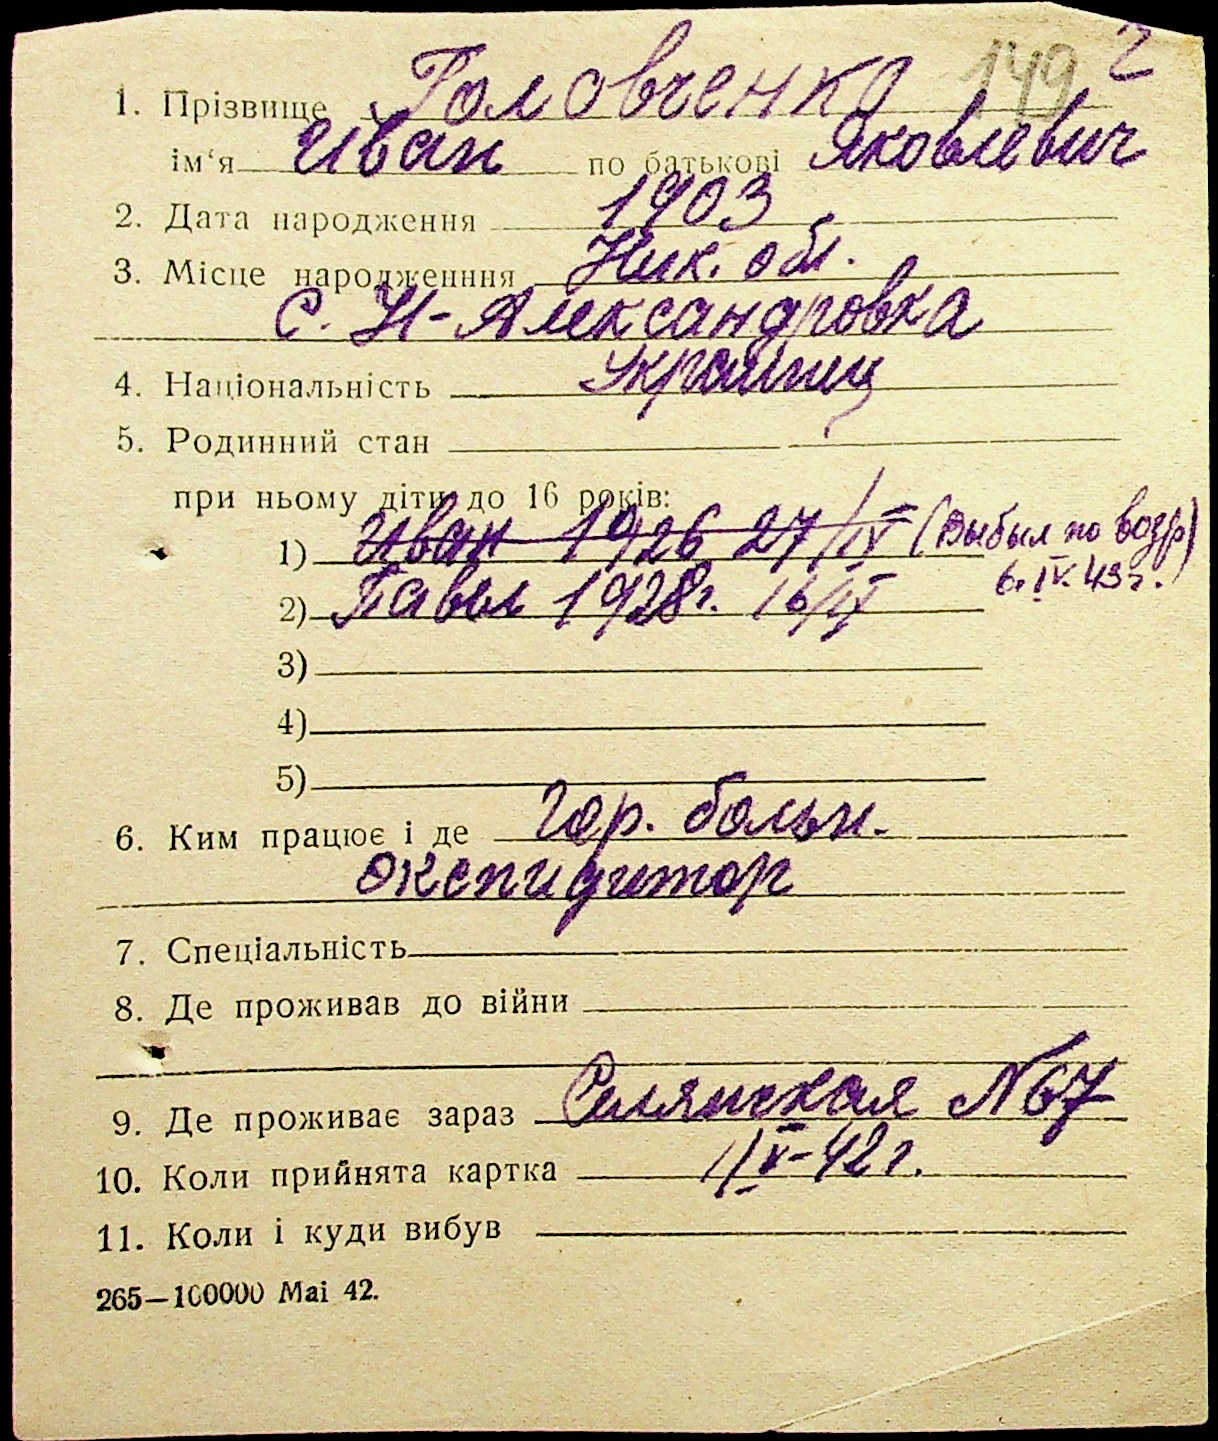 149 2
1. Прізвище Головченко
ім‘я Иван по батькові Яковлевич
2. Дата народження 1903
3. Місце народженння Ник. обл.
с. Н-Александровка
4. Національність Украинец
5. Родинний стан
при ньому діти до 16 років:
1) Иван 1926 27/IV (Выбыл по возр)
6. IV. 43 г.
2) Павел 1928 г. 16/IX
3)
4)
5)
6. Ким працює і де Гор. больн.
экспидитор
7. Спеціальність
8. Де проживав до війни
9. Де проживає зараз Селянская № 67
10. Коли прийнята картка 1/V-42 г.
11. Коли і куди вибув
265—100000 Mai 42.